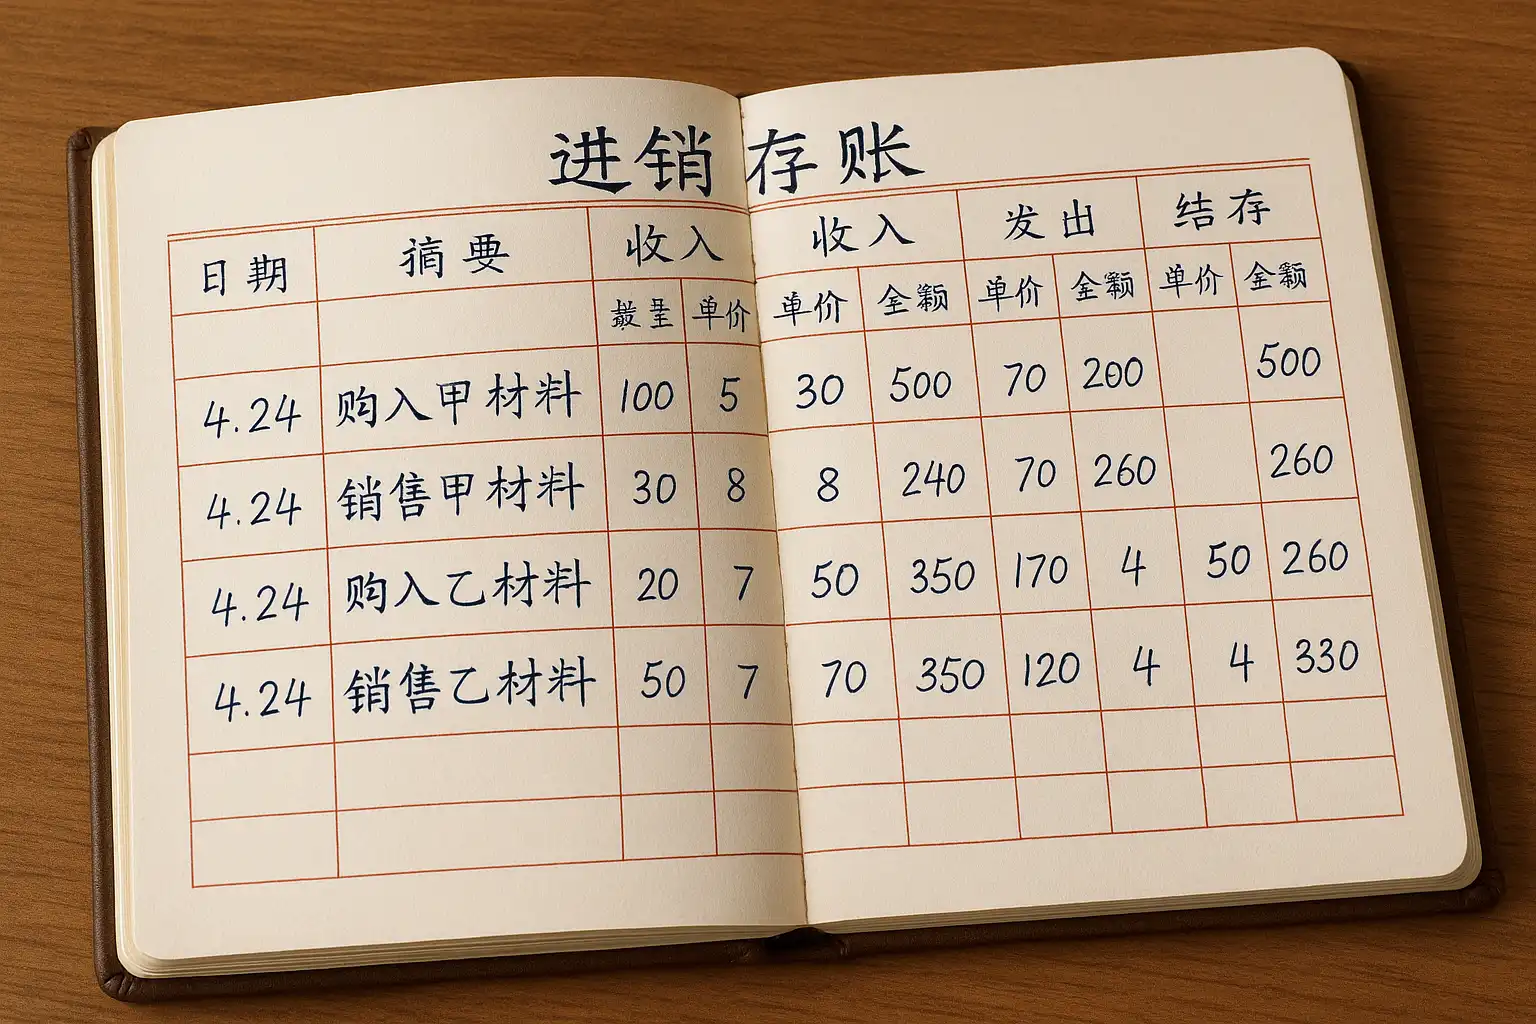 进销存账
日期 摘要 收入 收入 发出 结存
单价 单价 金额 单价 金额 单价 金额
4.24 购入甲材料 100 5 30 500 70 200 500
4.24 销售甲材料 30 8 8 240 70 260 260
4.24 购入乙材料 20 7 50 350 170 4 50 260
4.24 销售乙材料 50 7 70 350 120 4 4 330